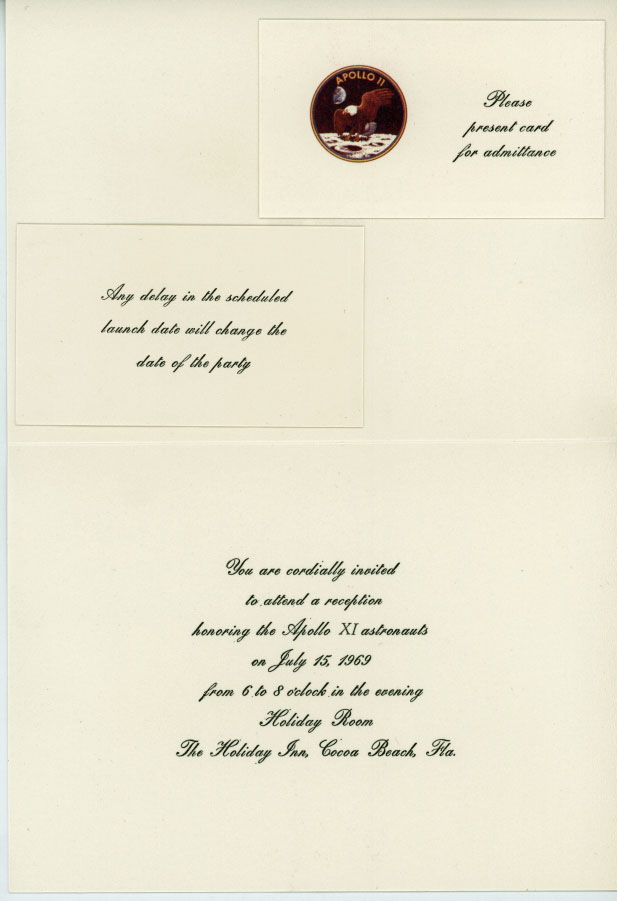 APOLLO 11
Please
present card
for admittance
Any delay in the scheduled
launch date will change the
date of the party
You are cordially invited
to attend a reception
honoring the Apollo XI astronauts
on July 15, 1969
from 6 to 8 o'clock in the evening
Holiday Room
The Holiday Inn, Cocoa Beach, Fla.